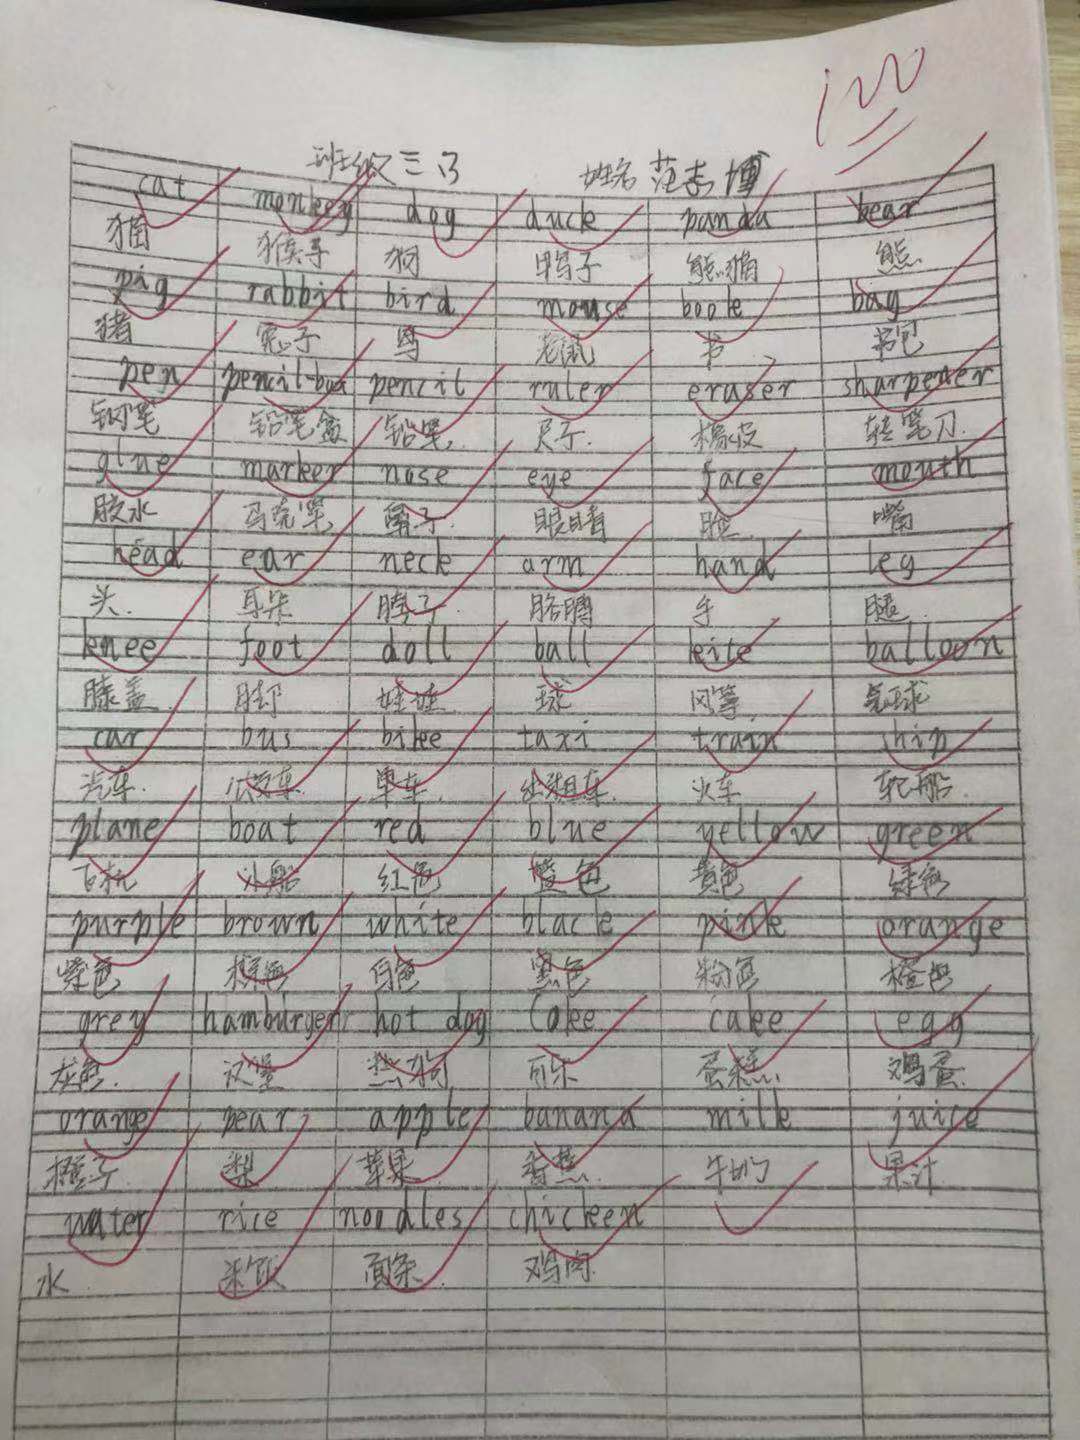 100
班级 三 姓名 范志博
cat monkey dog duck panda bear
猫 猴子 狗 鸭子 熊猫 熊
pig rabbit bird mouse book bag
猪 兔子 鸟 老鼠 书 书包
pen pencil-box pencil ruler eraser sharpener
钢笔 铅笔盒 铅笔 尺子 橡皮 转笔刀
glue marker nose eye face mouth
胶水 马克笔 鼻子 眼睛 脸 嘴
head ear neck arm hand leg
头 耳朵 脖子 胳膊 手 腿
knee foot doll ball kite balloon
膝盖 脚 娃娃 球 风筝 气球
car bus bike taxi train ship
汽车 公交车 单车 出租车 火车 轮船
plane boat red blue yellow green
飞机 小船 红色 蓝色 黄色 绿色
purple brown white black pink orange
紫色 棕色 白色 黑色 粉色 橙色
grey hamburger hot dog Coke cake egg
灰色 汉堡 热狗 可乐 蛋糕 鸡蛋
orange pear apple banana milk juice
橙子 梨 苹果 香蕉 牛奶 果汁
water rice noodles chicken
水 米饭 面条 鸡肉